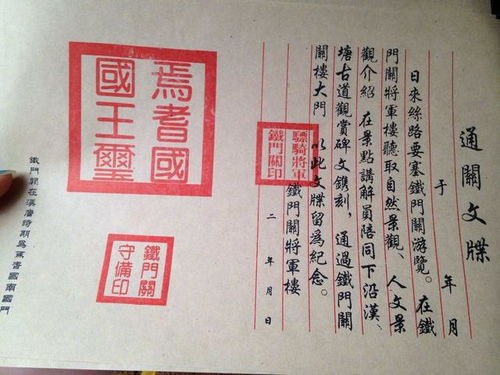 通關文牒
于 年 月
日來絲路要塞鐵門關游覽。在鐵
門關將軍樓聽取自然景觀、人文景
觀介紹 在景點講解員陪同下沿漢、
塘古道觀賞碑文鐫刻,通過鐵門關
關樓大門 以此文牒留為紀念。
鐵門關將軍樓
二 年 月 日
驃騎將軍
鐵門關印
焉耆國
國王璽
鐵門關
守備印
鐵門關在漢唐時期為焉耆國南國門